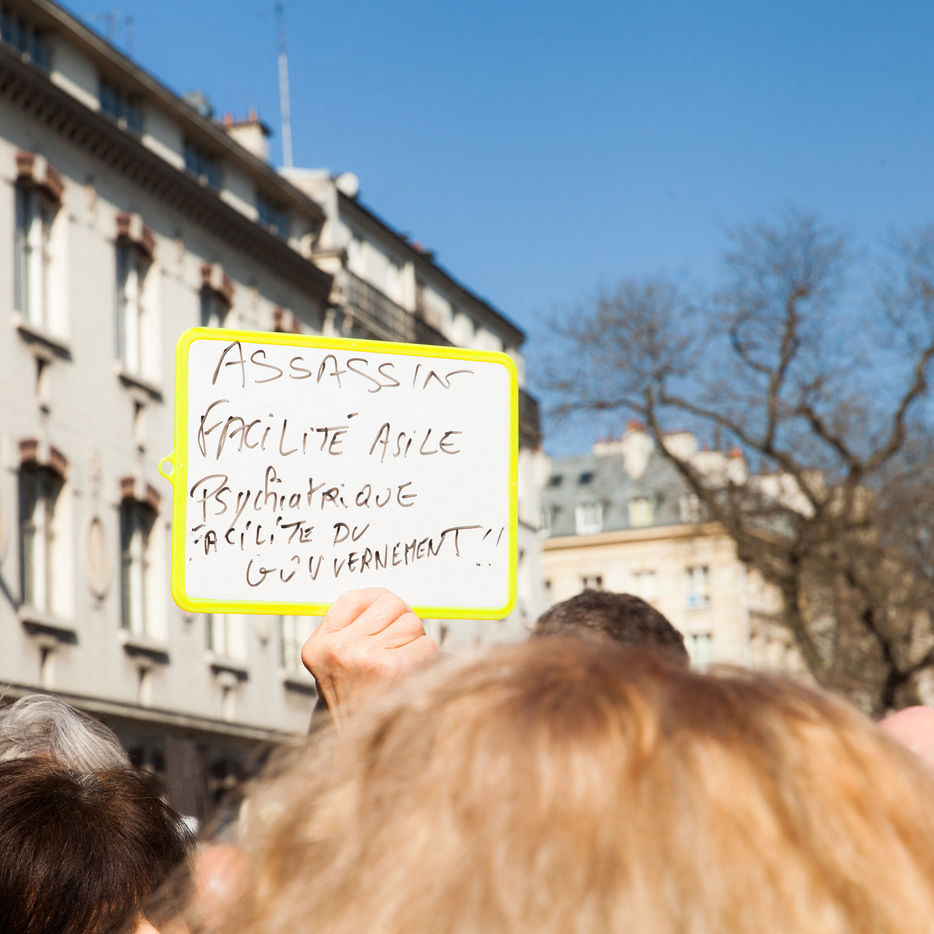 ASSASSIN
FACILITÉ ASILE
PSychiatRiQUE
FACILITE DU
GOUVERNEMENT !!